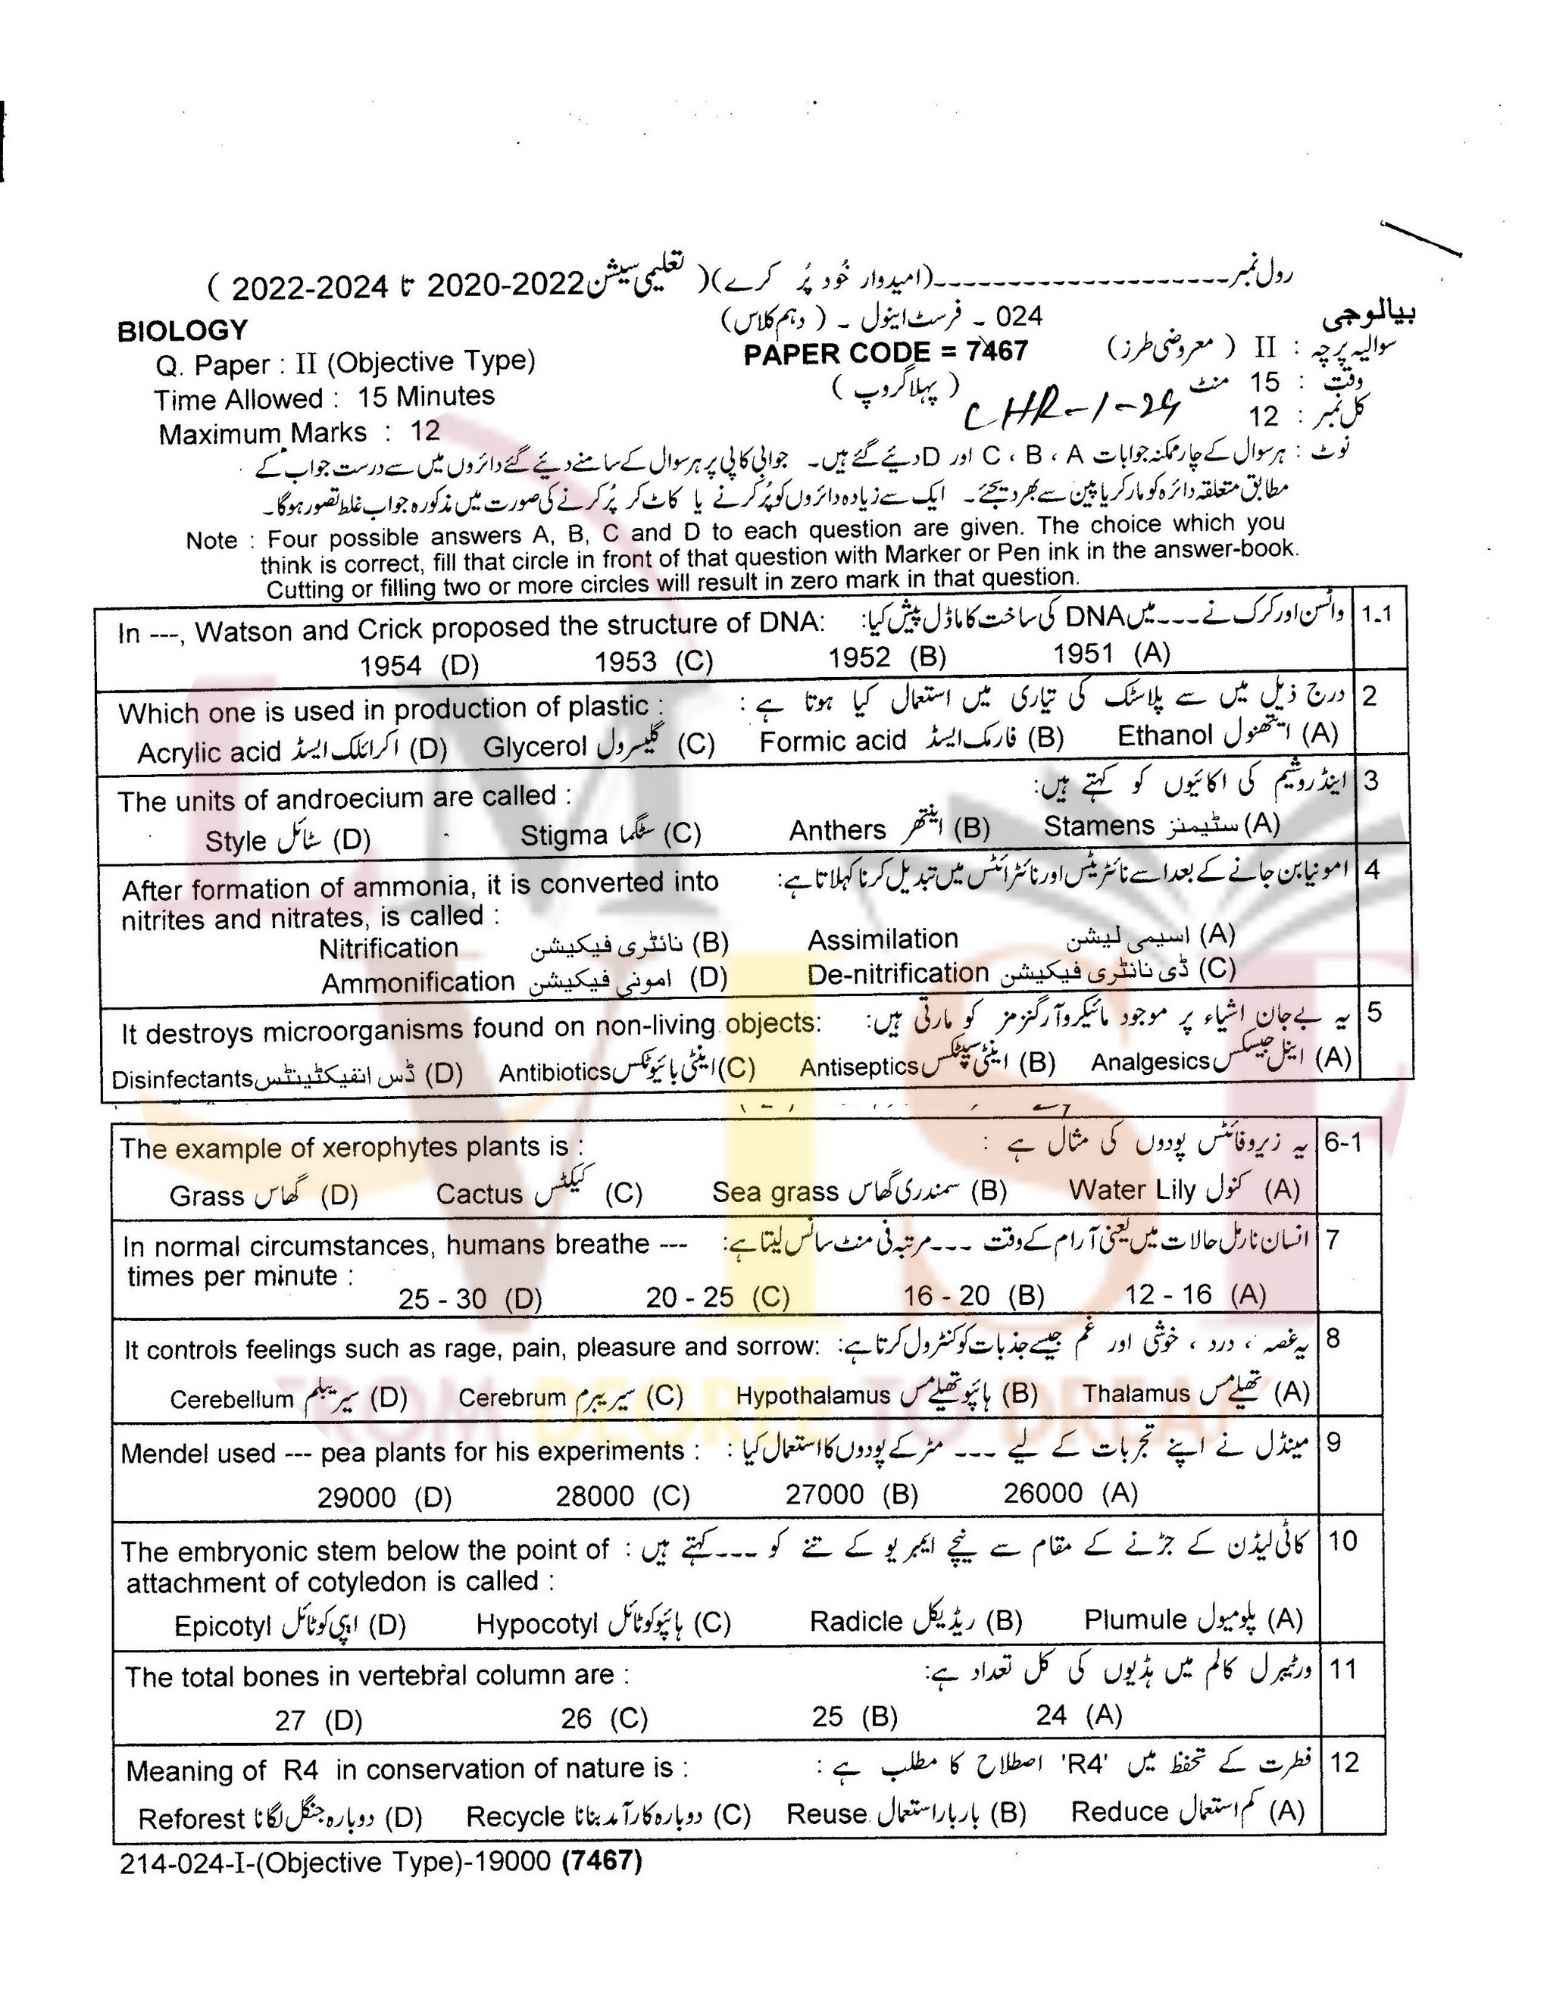 رول نمبر-------------------(امیدوار خُود پُر کرے)( تعلیمی سیشن 2020-2022 تا 2022-2024 )
بیالوجی 024 ۔ فرسٹ اینول ۔ ( دہم کلاس) BIOLOGY
سوالیہ پرچہ : II ( معروضی طرز) PAPER CODE = 7467 Q. Paper : II (Objective Type)
وقت : 15 منٹ ( پہلا گروپ ) Time Allowed : 15 Minutes
کل نمبر : 12 CHR-1-24 Maximum Marks : 12
نوٹ : ہر سوال کے چار ممکنہ جوابات A ، B ، C اور D دیئے گئے ہیں۔ جوابی کاپی پر ہر سوال کے سامنے دیئے گئے دائروں میں سے درست جواب کے
مطابق متعلقہ دائرہ کو مارکر یا پین سے بھر دیجئے۔ ایک سے زیادہ دائروں کو پُر کرنے یا کاٹ کر پُر کرنے کی صورت میں مذکورہ جواب غلط تصور ہوگا۔
Note : Four possible answers A, B, C and D to each question are given. The choice which you
think is correct, fill that circle in front of that question with Marker or Pen ink in the answer-book.
Cutting or filling two or more circles will result in zero mark in that question.
In ---, Watson and Crick proposed the structure of DNA: واٹسن اور کرک نے ۔۔۔ میں DNA کی ساخت کا ماڈل پیش کیا: 1.1
1954 (D) 1953 (C) 1952 (B) 1951 (A)
Which one is used in production of plastic : درج ذیل میں سے پلاسٹک کی تیاری میں استعمال کیا ہوتا ہے : 2
Acrylic acid اکرائلک ایسڈ (D) Glycerol گلیسرول (C) Formic acid فارمک ایسڈ (B) Ethanol ایتھنول (A)
The units of androecium are called : اینڈروشیم کی اکائیوں کو کہتے ہیں: 3
Style سٹائل (D) Stigma سٹگما (C) Anthers اینتھر (B) Stamens سٹیمنز (A)
After formation of ammonia, it is converted into امونیا بن جانے کے بعد اسے نائٹریٹس اور نائٹرائٹس میں تبدیل کرنا کہلاتا ہے: 4
nitrites and nitrates, is called :
Nitrification نائٹری فیکیشن (B) Assimilation اسیمی لیشن (A)
Ammonification امونی فیکیشن (D) De-nitrification ڈی نائٹری فیکیشن (C)
It destroys microorganisms found on non-living objects: یہ بےجان اشیاء پر موجود مائیکروآرگنزمز کو مارتی ہیں: 5
Disinfectants ڈس انفیکٹینٹس (D) Antibiotics اینٹی بائیوٹکس (C) Antiseptics اینٹی سپٹکس (B) Analgesics اینل جیسکس (A)
The example of xerophytes plants is : یہ زیروفائٹس پودوں کی مثال ہے : 6-1
Grass گھاس (D) Cactus کیکٹس (C) Sea grass سمندری گھاس (B) Water Lily کنول (A)
In normal circumstances, humans breathe --- انسان نارمل حالات میں یعنی آرام کے وقت ۔۔۔ مرتبہ فی منٹ سانس لیتا ہے: 7
times per minute :
25 - 30 (D) 20 - 25 (C) 16 - 20 (B) 12 - 16 (A)
It controls feelings such as rage, pain, pleasure and sorrow: یہ غصہ ، درد ، خوشی اور غم جیسے جذبات کو کنٹرول کرتا ہے: 8
Cerebellum سیریبلم (D) Cerebrum سیریبرم (C) Hypothalamus ہائپوتھیلے مس (B) Thalamus تھیلے مس (A)
Mendel used --- pea plants for his experiments : مینڈل نے اپنے تجربات کے لیے ۔۔۔ مٹر کے پودوں کا استعمال کیا : 9
29000 (D) 28000 (C) 27000 (B) 26000 (A)
The embryonic stem below the point of کاٹی لیڈن کے جڑنے کے مقام سے نیچے ایمبریو کے تنے کو ۔۔۔ کہتے ہیں : 10
attachment of cotyledon is called :
Epicotyl ایپی کوٹائل (D) Hypocotyl ہائپوکوٹائل (C) Radicle ریڈیکل (B) Plumule پلومیول (A)
The total bones in vertebral column are : ورٹیبرل کالم میں ہڈیوں کی کل تعداد ہے: 11
27 (D) 26 (C) 25 (B) 24 (A)
Meaning of R4 in conservation of nature is : فطرت کے تحفظ میں 'R4' اصطلاح کا مطلب ہے : 12
Reforest دوبارہ جنگل لگانا (D) Recycle دوبارہ کارآمد بنانا (C) Reuse بار بار استعمال (B) Reduce کم استعمال (A)
214-024-I-(Objective Type)-19000 (7467)